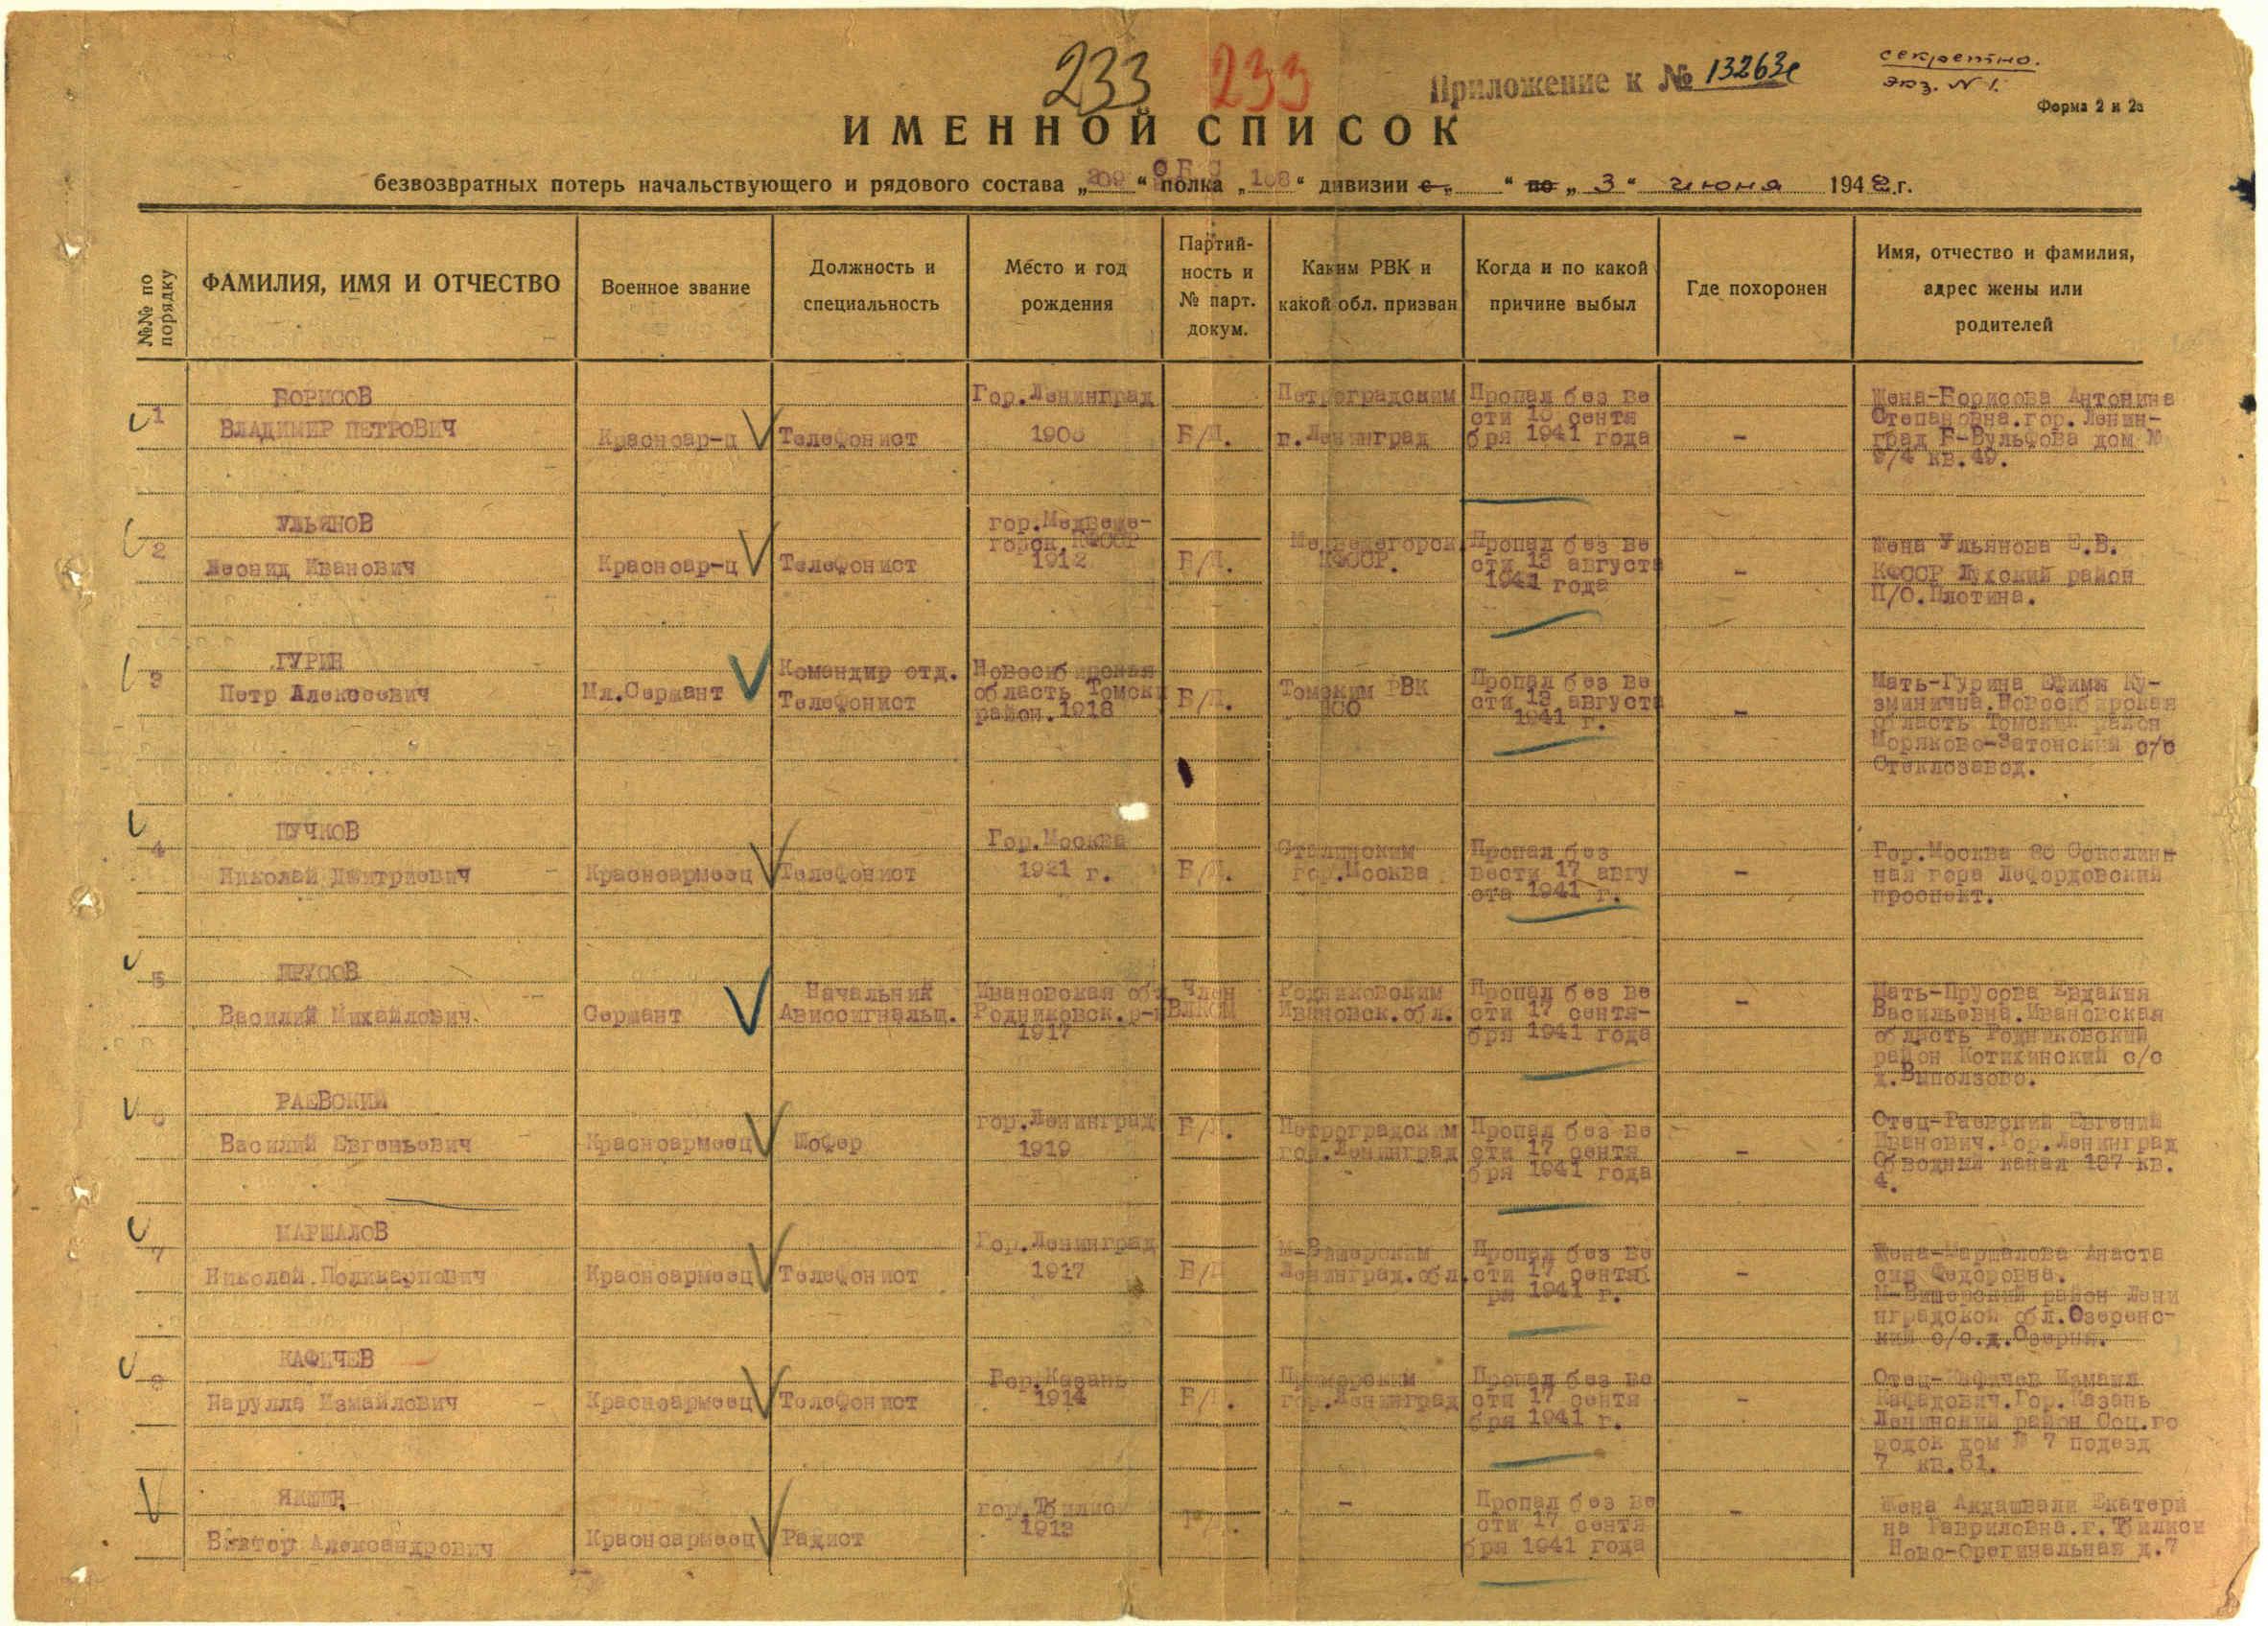 233 233
Приложение к № 13263с
секретно.
экз. N 1.
Форма 2 и 2а
ИМЕННОЙ СПИСОК
безвозвратных потерь начальствующего и рядового состава „209“ ОБС полка „168“ дивизии с „ “ по „3“ июня 1942 г.
№№ по порядку
ФАМИЛИЯ, ИМЯ И ОТЧЕСТВО
Военное звание
Должность и
специальность
Место и год
рождения
Партий-
ность и
№ парт.
докум.
Каким РВК и
какой обл. призван
Когда и по какой
причине выбыл
Где похоронен
Имя, отчество и фамилия,
адрес жены или
родителей
1
БОРИСОВ
ВЛАДИМИР ПЕТРОВИЧ
Красноар-ц
Телефонист
Гор.Ленинград
Б/П.
Петроградским
г.Ленинград
Пропал без ве
сти 10 сентя
бря 1941 года
-
Жена-Борисова Антонина
Степановна.гор.Ленин-
град Б-Вульфова дом №
кв.
2
УЛЬЯНОВ
Леонид Иванович
Красноар-ц
Телефонист
гор.Медвеже-
горск КФССР
1912
Б/П.
Медвежегорск
КФССР.
Пропал без ве
сти 13 августа
1941 года
-
Жена Ульянова Е.В.
КФССР Лухский район
П/О.Плотина.
3
ГУРИН
Петр Алексеевич
Мл.Сержант
Командир отд.
Телефонист
Новосибирская
область Томски
район.1918
Б/П.
Томским РВК
НСО
Пропал без ве
сти 13 августа
1941 г.
-
Мать-Гурина Ефимя Ку-
зминична.Новосибирская
область Томский район
Моряково-Затонский с/с
Стеклозавод.
4
ПУЧКОВ
Николай Дмитриевич
Красноармеец
Телефонист
Гор.Москва
1921 г.
Б/П.
Сталинским
гор.Москва
Пропал без
вести 17 авгу
ста 1941 г.
-
Гор.Москва Соколин
ная гора Лефордовский
проспект.
5
ПРУСОВ
Василий Михайлович.
Сержант
Начальник
Авиосигнальщ.
Ивановская обл
Родниковск.р-н
1917
Член
ВЛКСМ
Родниковским
Ивановск.обл.
Пропал без ве
сти 17 сентя-
бря 1941 года
-
Мать-Прусова Евдакия
Васильевна.Ивановская
область Родниковский
район Котихинский с/с
д.Выползово.
6
РАЕВСКИЙ
Василий Евгеньевич
Красноармеец
Шофер
гор.Ленинград
1919
Б/П.
Петроградским
гор.Ленинград
Пропал без ве
сти 17 сентя
бря 1941 года
-
Отец-Раевский Евгений
Иванович.Гор.Ленинград
Обводный канал 197 кв.
4.
7
МАРШАЛОВ
Николай.Поликарпович
Красноармеец
Телефонист
Гор.Ленинград
1917
Б/П
М-Вишерским
Ленинград.обл.
Пропал без ве
сти 17 сентяб
ря 1941 г.
-
Жена-Маршалова Анаста
сия Федоровна.
М-Вишерский район Лени
нградской обл.Озеренс-
кий с/с.д.Озерны.
8
КАФИЧЕВ
Нарулла Измайлович
Красноармеец
Телефонист
Гор.Казань
1914
Б/П.
Приморским
гор.Ленинград
Пропал без ве
сти 17 сентя
бря 1941 г.
-
Отец-Кафичев Измаил
Гор.Казань
Ленинский район Соц.го
родок дом № 7 подезд
7 кв.61.
ЯКШИН
Виктор Александрович
Красноармеец
Радист
гор.Тбилиси
1913
Б/П.
-
Пропал без ве
сти 17 сентя
бря 1941 года
-
Жена Екатери
на Гавриловна.г.Тбилиси
Ново-Орегинальная д.7